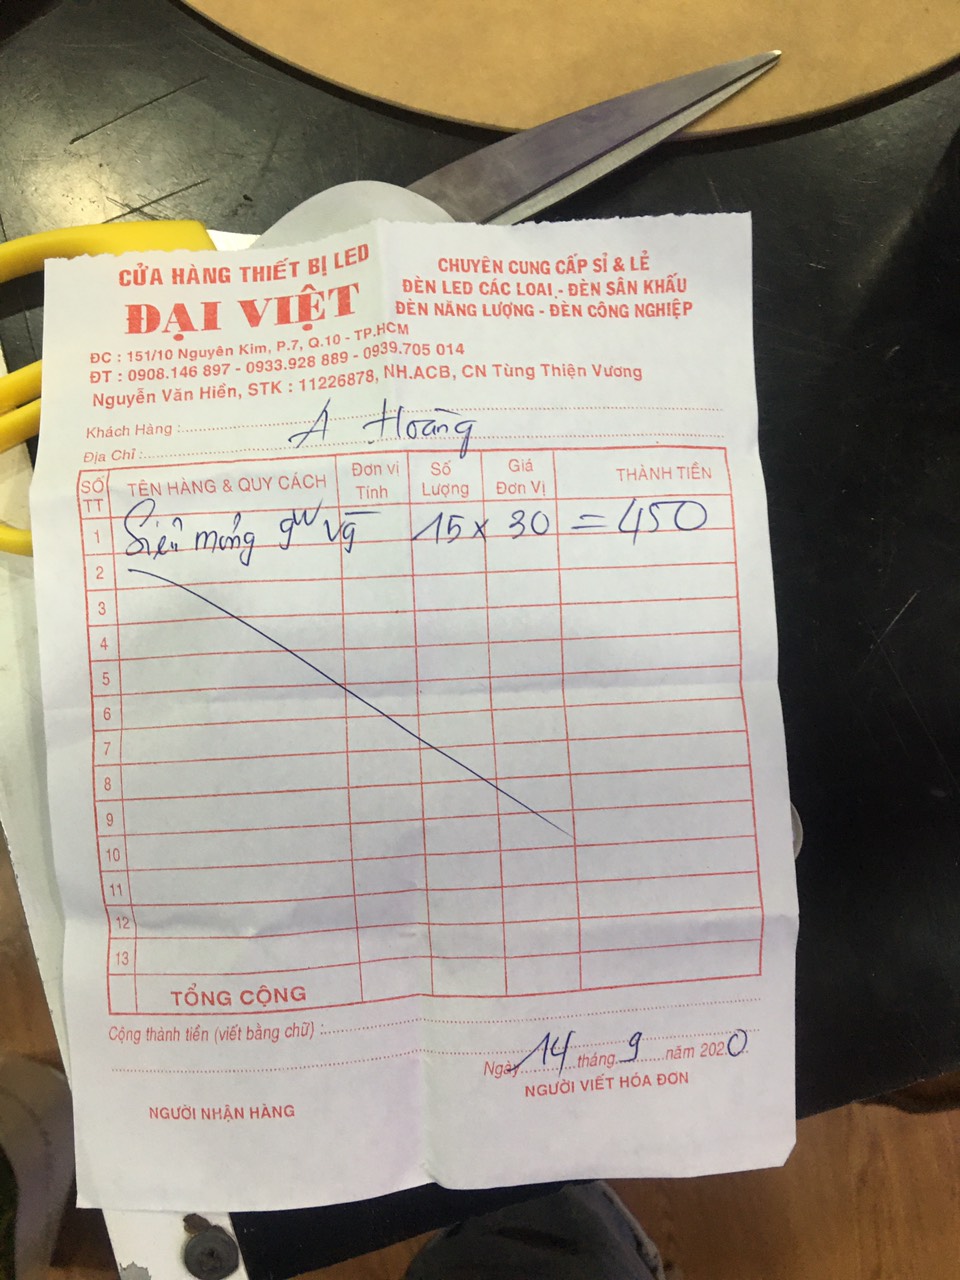 CỬA HÀNG THIẾT BỊ LED
ĐẠI VIỆT
CHUYÊN CUNG CẤP SỈ & LẺ
ĐÈN LED CÁC LOẠI - ĐÈN SÂN KHẤU
ĐÈN NĂNG LƯỢNG - ĐÈN CÔNG NGHIỆP
ĐC : 151/10 Nguyên Kim, P.7, Q.10 - TP.HCM
ĐT : 0908.146 897 - 0933.928 889 - 0939.705 014
Nguyễn Văn Hiển, STK : 11226878, NH.ACB, CN Tùng Thiện Vương
Khách Hàng : A Hoàng
Địa Chỉ :
SỐ TT TÊN HÀNG & QUY CÁCH Đơn vị Tính Số Lượng Giá Đơn Vị THÀNH TIỀN
1 Siêu mỏng 9W vg 15 x 30 = 450
2
3
4
5
6
7
8
9
10
11
12
13
TỔNG CỘNG
Cộng thành tiền (viết bằng chữ) :
Ngày 14 tháng 9 năm 2020
NGƯỜI NHẬN HÀNG
NGƯỜI VIẾT HÓA ĐƠN